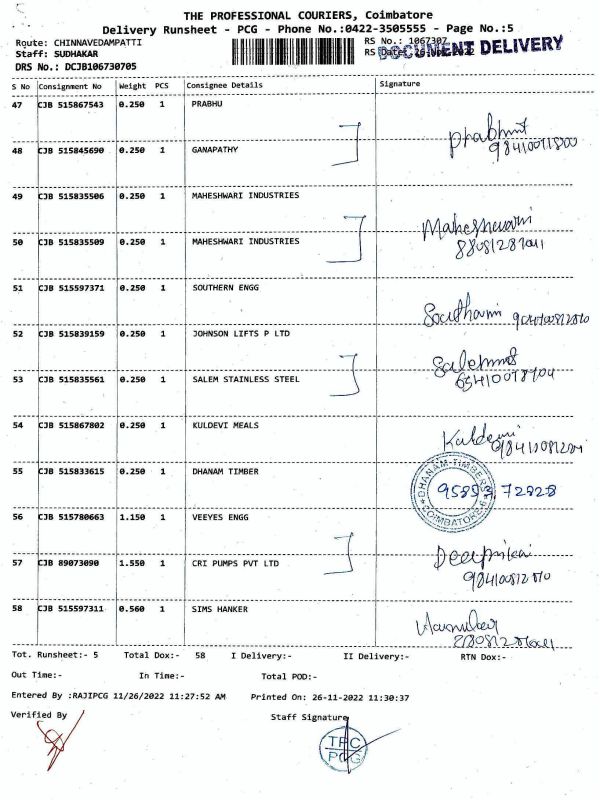 THE PROFESSIONAL COURIERS, Coimbatore
Delivery Runsheet - PCG - Phone No.:0422-3505555 - Page No.:5
Route: CHINNAVEDAMPATTI
RS No.: 1067307
Staff: SUDHAKAR
RS Date:
DOCUMENT DELIVERY
DRS No.: DCJB106730705
S No Consignment No Weight PCS Consignee Details Signature
47 CJB 515867543 0.250 1 PRABHU
48 CJB 515845690 0.250 1 GANAPATHY
49 CJB 515835506 0.250 1 MAHESHWARI INDUSTRIES
50 CJB 515835509 0.250 1 MAHESHWARI INDUSTRIES
Maheshwari
51 CJB 515597371 0.250 1 SOUTHERN ENGG
52 CJB 515839159 0.250 1 JOHNSON LIFTS P LTD
53 CJB 515835561 0.250 1 SALEM STAINLESS STEEL
54 CJB 515867802 0.250 1 KULDEVI MEALS
55 CJB 515833615 0.250 1 DHANAM TIMBER
DHANAM-TIMBERS
COIMBATORE-6
56 CJB 515780663 1.150 1 VEEYES ENGG
57 CJB 89073090 1.550 1 CRI PUMPS PVT LTD
58 CJB 515597311 0.560 1 SIMS HANKER
Tot. Runsheet:- 5 Total Dox:- 58 I Delivery:- II Delivery:- RTN Dox:-
Out Time:- In Time:- Total POD:-
Entered By :RAJIPCG 11/26/2022 11:27:52 AM Printed On: 26-11-2022 11:30:37
Verified By Staff Signature
TPC
PCG